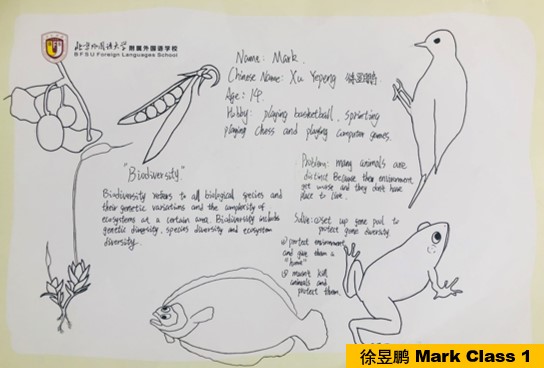 北京外国语大学附属外国语学校
BFSU Foreign Languages School
Name: Mark.
Chinese Name: Xu Yepeng 徐昱鹏
Age: 14.
Hobby: playing basketball, sprinting
playing chess and playing computer games.
"Biodiversity"
Biodiversity refers to all biological species and
their genetic variations and the complexity of
ecosystems in a certain area. Biodiversity includes
genetic diversity, species diversity and ecosystem
diversity.
Problem: many animals are
distinct Because their environment
get worse and they don't have
place to live.
Solve: ①set up gene pool to
protect gene diversity
② protect environment
and give them a
"home"
③ mustn't kill
animals and
protect them.
徐昱鹏 Mark Class 1